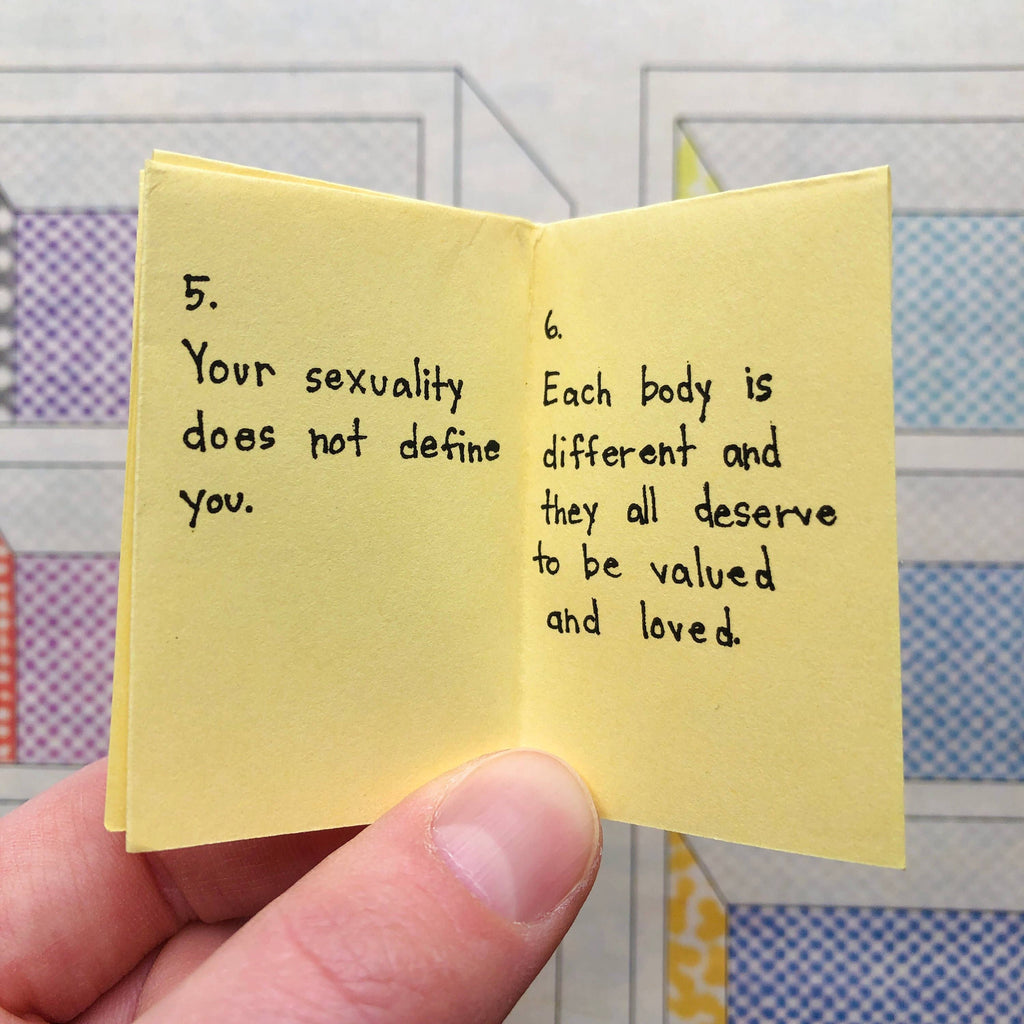 5.
Your sexuality
does not define
you.
6.
Each body is
different and
they all deserve
to be valued
and loved.